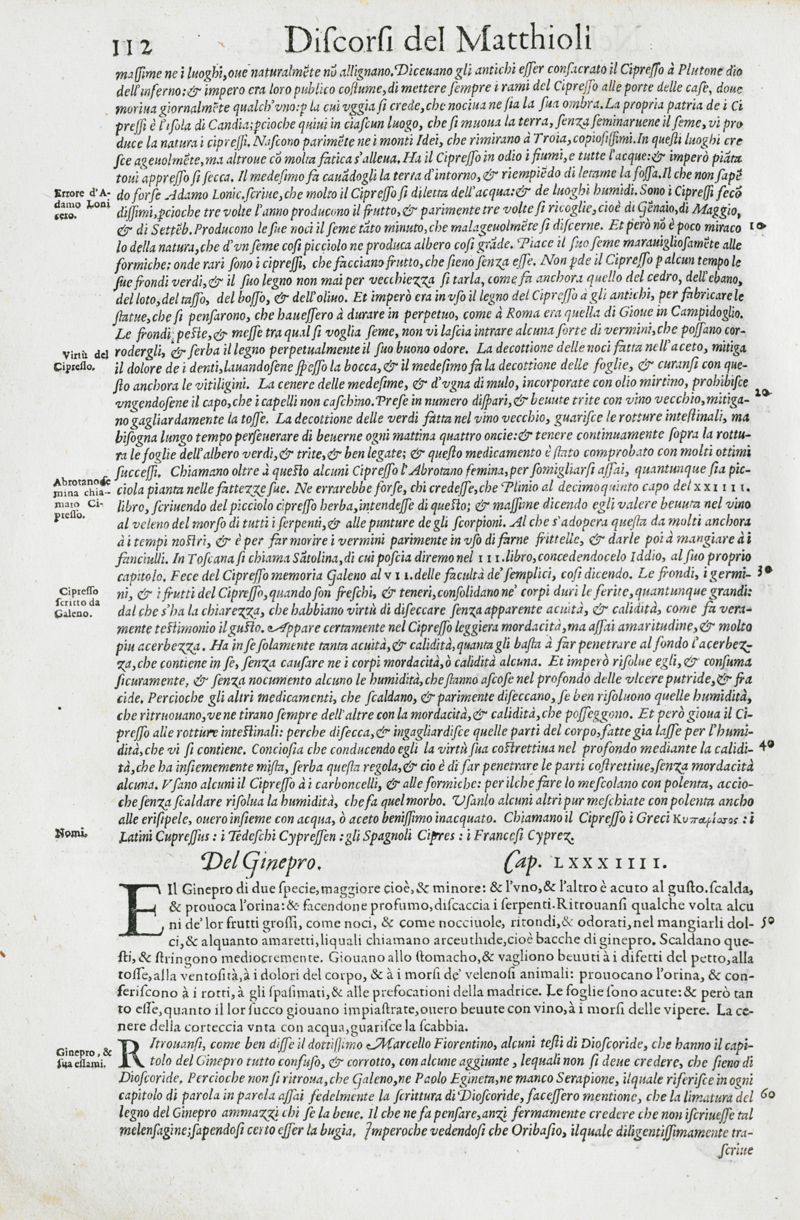 112 Diſcorſi del Matthioli
maſſime ne i luoghi, oue naturalmẽte nõ allignano. Diceuano gli antichi eſſer conſacrato il Cipreſſo à Plutone dio
dell'inferno: & impero era loro publico coſtume, di mettere ſempre i rami del Cipreſſo alle porte delle caſe, doue
moriua giornalmẽte qualch'vno: p la cui vggia ſi crede, che nociua ne ſia la ſua ombra. La propria patria de i Ci
preſſi è l'iſola di Candia: pcioche quiui in ciaſcun luogo, che ſi muoua la terra, ſenza ſeminaruene il ſeme, vi pro
duce la natura i cipreſſi. Naſcono parimẽte ne i monti Idei, che rimirano à Troia, copioſiſſimi. In queſti luoghi cre
ſce ageuolmẽte, ma altroue cõ molta fatica s'alleua. Ha il Cipreſſo in odio i fiumi, e tutte l'acque: & imperò piãta
toui appreſſo ſi ſecca. Il medeſimo fa cauãdogli la terra d'intorno, & riempiẽdo di letame la foſſa. Il che non ſapẽ
Errore d'A-
damo Loni
cero.
do forſe Adamo Lonic. ſcriue, che molto il Cipreſſo ſi diletta dell'acqua: & de luoghi humidi. Sono i Cipreſſi fecõ
diſſimi, pcioche tre volte l'anno producono il frutto, & parimente tre volte ſi ricoglie, cioè di Gẽnaio, di Maggio,
& di Settẽb. Producono le ſue noci il ſeme tãto minuto, che malageuolmẽte ſi diſcerne. Et però nõ è poco miraco 10
lo della natura, che d'vn ſeme coſi picciolo ne produca albero coſi grãde. Piace il ſuo ſeme marauiglioſamẽte alle
formiche: onde rari ſono i cipreſſi, che facciano frutto, che ſieno ſenza eſſe. Non pde il Cipreſſo p alcun tempo le
ſue frondi verdi, & il ſuo legno non mai per vecchiezza ſi tarla, come fa anchora quello del cedro, dell'ebano,
del loto, del taſſo, del boſſo, & dell'oliuo. Et imperò era in vſo il legno del Cipreſſo à gli antichi, per fabricare le
ſtatue, che ſi penſarono, che haueſſero à durare in perpetuo, come à Roma era quella di Gioue in Campidoglio.
Le frondi peſte, & meſſe tra qual ſi voglia ſeme, non vi laſcia intrare alcuna ſorte di vermini, che poſſano cor-
Virtù del
Cipreſſo.
rodergli, & ſerba il legno perpetualmente il ſuo buono odore. La decottione delle noci fatta nell'aceto, mitiga
il dolore de i denti, lauandoſene ſpeſſo la bocca, & il medeſimo fa la decottione delle foglie, & curanſi con que-
ſto anchora le vitiligini. La cenere delle medeſime, & d'vgna di mulo, incorporate con olio mirtino, prohibiſce
vngendoſene il capo, che i capelli non caſchino. Preſe in numero diſpari, & beuute trite con vino vecchio, mitiga- 20
no gagliardamente la toſſe. La decottione delle verdi fatta nel vino vecchio, guariſce le rotture inteſtinali, ma
biſogna lungo tempo perſeuerare di beuerne ogni mattina quattro oncie: & tenere continuamente ſopra la rottu-
ra le foglie dell'albero verdi, & trite, & ben legate; & queſto medicamento è ſtato comprobato con molti ottimi
Abrotano fe
mina chia-
mato Ci-
preſſo.
ſucceſſi. Chiamano oltre à queſto alcuni Cipreſſo l'Abrotano femina, per ſomigliarſi aſſai, quantunque ſia pic-
ciola pianta nelle fattezze ſue. Ne errarebbe forſe, chi credeſſe, che Plinio al decimoquinto capo del xxiiii.
libro, ſcriuendo del picciolo cipreſſo herba, intendeſſe di queſto; & maſſime dicendo egli valere beuuta nel vino
al veleno del morſo di tutti i ſerpenti, & alle punture de gli ſcorpioni. Al che s'adopera queſta da molti anchora
à i tempi noſtri, & è per far morire i vermini parimente in vſo di farne frittelle, & darle poi à mangiare à i
fanciulli. In Toſcana ſi chiama Sãtolina, di cui poſcia diremo nel iii. libro, concedendocelo Iddio, al ſuo proprio
capitolo. Fece del Cipreſſo memoria Galeno al vii. delle facultà de' ſemplici, coſi dicendo. Le frondi, i germi- 30
Cipreſſo
ſcritto da
Galeno.
ni, & i frutti del Cipreſſo, quando ſon freſchi, & teneri, conſolidano ne' corpi duri le ferite, quantunque grandi:
dal che s'ha la chiarezza, che habbiano virtù di diſeccare ſenza apparente acuità, & calidità, come fa vera-
mente teſtimonio il guſto. Appare certamente nel Cipreſſo leggiera mordacità, ma aſſai amaritudine, & molto
piu acerbezza. Ha in ſe ſolamente tanta acuità, & calidità, quanta gli baſta à far penetrare al fondo l'acerbez-
za, che contiene in ſe, ſenza cauſare ne i corpi mordacità, ò calidità alcuna. Et imperò riſolue egli, & conſuma
ſicuramente, & ſenza nocumento alcuno le humidità, che ſtanno aſcoſe nel profondo delle vlcere putride, & fra
cide. Percioche gli altri medicamenti, che ſcaldano, & parimente diſeccano, ſe ben riſoluono quelle humidità,
che ritruouano, ve ne tirano ſempre dell'altre con la mordacità, & calidità, che poſſeggono. Et però gioua il Ci-
preſſo alle rotture inteſtinali: perche diſecca, & ingagliardiſce quelle parti del corpo, fatte gia laſſe per l'humi-
dità, che vi ſi contiene. Concioſia che conducendo egli la virtù ſua coſtrettiua nel profondo mediante la calidi- 40
tà, che ha inſiememente miſta, ſerba queſta regola, & cio è di far penetrare le parti coſtrettiue, ſenza mordacità
alcuna. Vſano alcuni il Cipreſſo à i carboncelli, & alle formiche: per ilche fare lo meſcolano con polenta, accio-
che ſenza ſcaldare riſolua la humidità, che fa quel morbo. Vſanlo alcuni altri pur meſchiate con polenta ancho
alle eriſipele, ouero inſieme con acqua, ò aceto beniſſimo inacquato. Chiamano il Cipreſſo i Greci Κυπαρίσσος: i
Nomi.
Latini Cupreſſus: i Tedeſchi Cypreſſen: gli Spagnoli Cipres: i Franceſi Cyprez.
Del Ginepro. Cap. LXXXIIII.
EIl Ginepro di due ſpecie, maggiore cioè, & minore: & l'vno, & l'altro è acuto al guſto. ſcalda,
& prouoca l'orina: & facendone profumo, diſcaccia i ſerpenti. Ritrouanſi qualche volta alcu
ni de' lor frutti groſſi, come noci, & come nocciuole, ritondi, & odorati, nel mangiarli dol- 50
ci, & alquanto amaretti, liquali chiamano arceuthide, cioè bacche di ginepro. Scaldano que-
ſti, & ſtringono mediocremente. Giouano allo ſtomacho, & vagliono beuuti à i difetti del petto, alla
toſſe, alla ventoſità, à i dolori del corpo, & à i morſi de' velenoſi animali: prouocano l'orina, & con-
feriſcono à i rotti, à gli ſpaſimati, & alle prefocationi della madrice. Le foglie ſono acute: & però tan
to eſſe, quanto il lor ſucco giouano impiaſtrate, ouero beuute con vino, à i morſi delle vipere. La ce-
nere della corteccia vnta con acqua, guariſce la ſcabbia.
Ginepro, &
ſua eſſami.
RItrouanſi, come ben diſſe il dottiſſimo Marcello Fiorentino, alcuni teſti di Dioſcoride, che hanno il capi-
tolo del Ginepro tutto confuſo, & corrotto, con alcune aggiunte, lequali non ſi deue credere, che ſieno di
Dioſcoride. Percioche non ſi ritroua, che Galeno, ne Paolo Egineta, ne manco Serapione, ilquale riferiſce in ogni
capitolo di parola in parola aſſai fedelmente la ſcrittura di Dioſcoride, faceſſero mentione, che la limatura del 60
legno del Ginepro ammazzi chi ſe la beue. Il che ne fa penſare, anzi fermamente credere che non iſcriueſſe tal
melenſagine; ſapendoſi certo eſſer la bugia. Imperoche vedendoſi che Oribaſio, ilquale diligentiſſimamente tra-
ſcriue